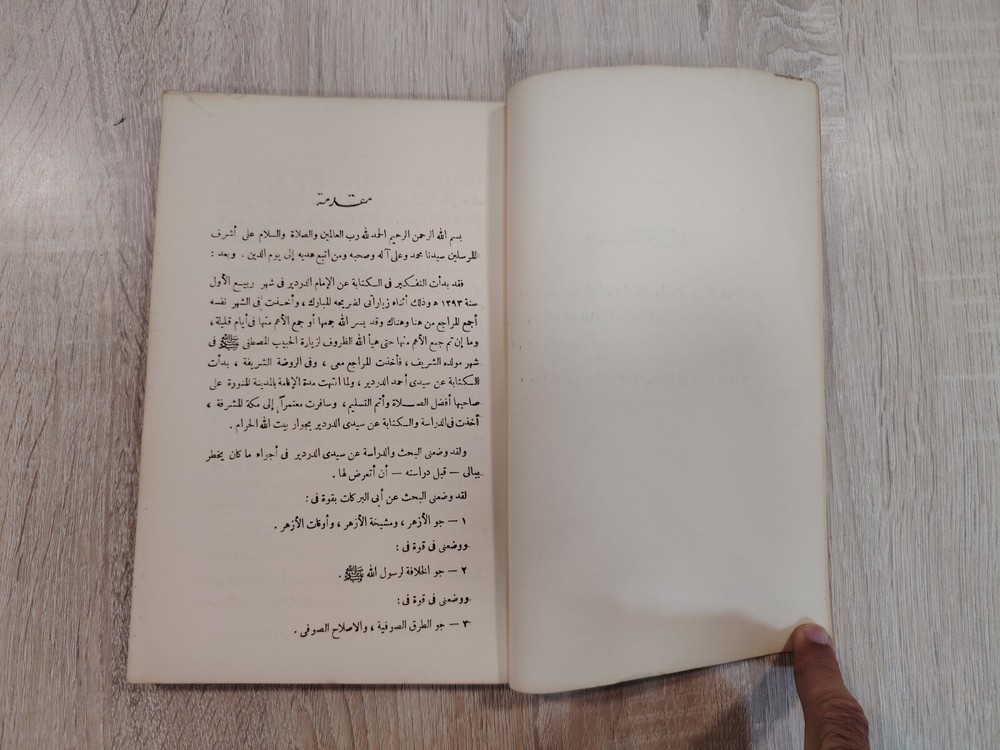 مقدمة
بسم الله الرحمن الرحيم الحمد لله رب العالمين والصلاة والسلام على أشرف
المرسلين سيدنا محمد وعلى آله وصحبه ومن اتبع هديه إلى يوم الدين . وبعد :
فقد بدأت التفكير فى الكتابة عن الإمام الدردير فى شهر ربيع الأول
سنة ١٣٩٣ ه وذلك أثناء زياراتى لضريحه المبارك ، وأخذت فى الشهر نفسه
أجمع المراجع من هنا وهناك وقد يسر الله جمعها أو جمع الأهم منها فى أيام قليلة ،
وما إن تم جمع الأهم منها حتى هيأ الله الظروف لزيارة الحبيب المصطفى ﷺ فى
شهر مولده الشريف ، فأخذت المراجع معى ، وفى الروضة الشريفة ، بدأت
الكتابة عن سيدى أحمد الدردير ، ولما انتهت مدة الإقامة بالمدينة المنورة على
صاحبها أفضل الصلاة وأتم التسليم ، وسافرت معتمرآ إلى مكة المشرفة ،
أخذت فى الدراسة والكتابة عن سيدى الدردير بجوار بيت الله الحرام .
ولقد وضعنى البحث والدراسة عن سيدى الدردير فى أجواء ما كان يخطر
ببالى — قبل دراسته — أن أتعرض لها .
لقد وضعنى البحث عن أبى البركات بقوة فى :
١ — جو الأزهر ، ومشيخة الأزهر ، وأوقات الأزهر .
ووضعنى فى قوة فى :
٢ — جو الخلافة لرسول الله ﷺ .
ووضعنى فى قوة فى :
٣ — جو الطرق الصوفية ، والاصلاح الصوفى .